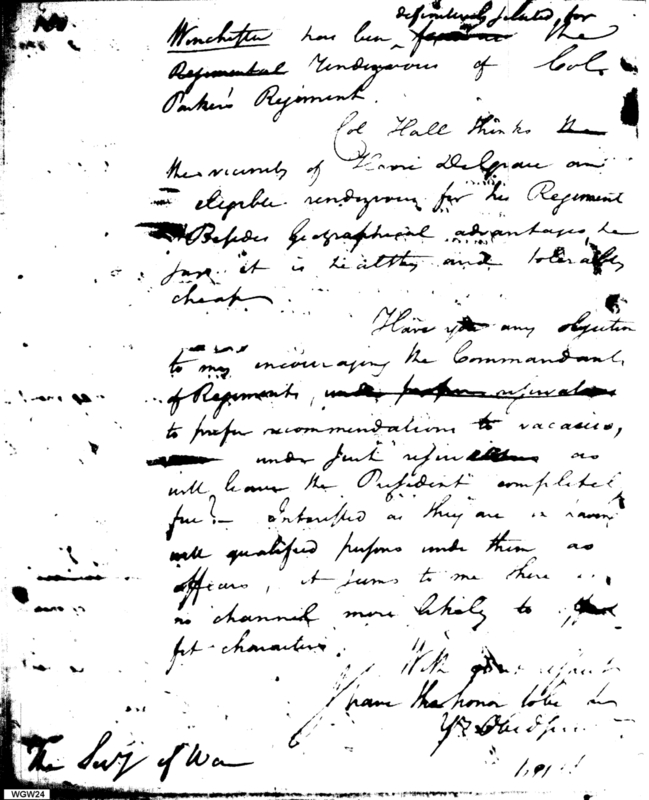 definitively selected for
Winchester has been the
Regimental rendezvous of Col
Parker's Regiment.
Col Hall thinks the
the vicinity of Havre De Grace an
eligible rendezvous for his Regiment
Besides Geographical advantages, he
says it is healthy and tolerably
cheap
Have you any objection
to my encouraging the Commandants
of Regiments, under proper reservations
to prefer recommendations to vacancies,
under such as
will leave the President completely
free? Interested as they are in having
well qualified persons under them as
officers, it seems to me there is
no channel more likely to
fit characters.
With great respect
I have the honor to be
Yr Obed Ser
The Secy of War
WGW24